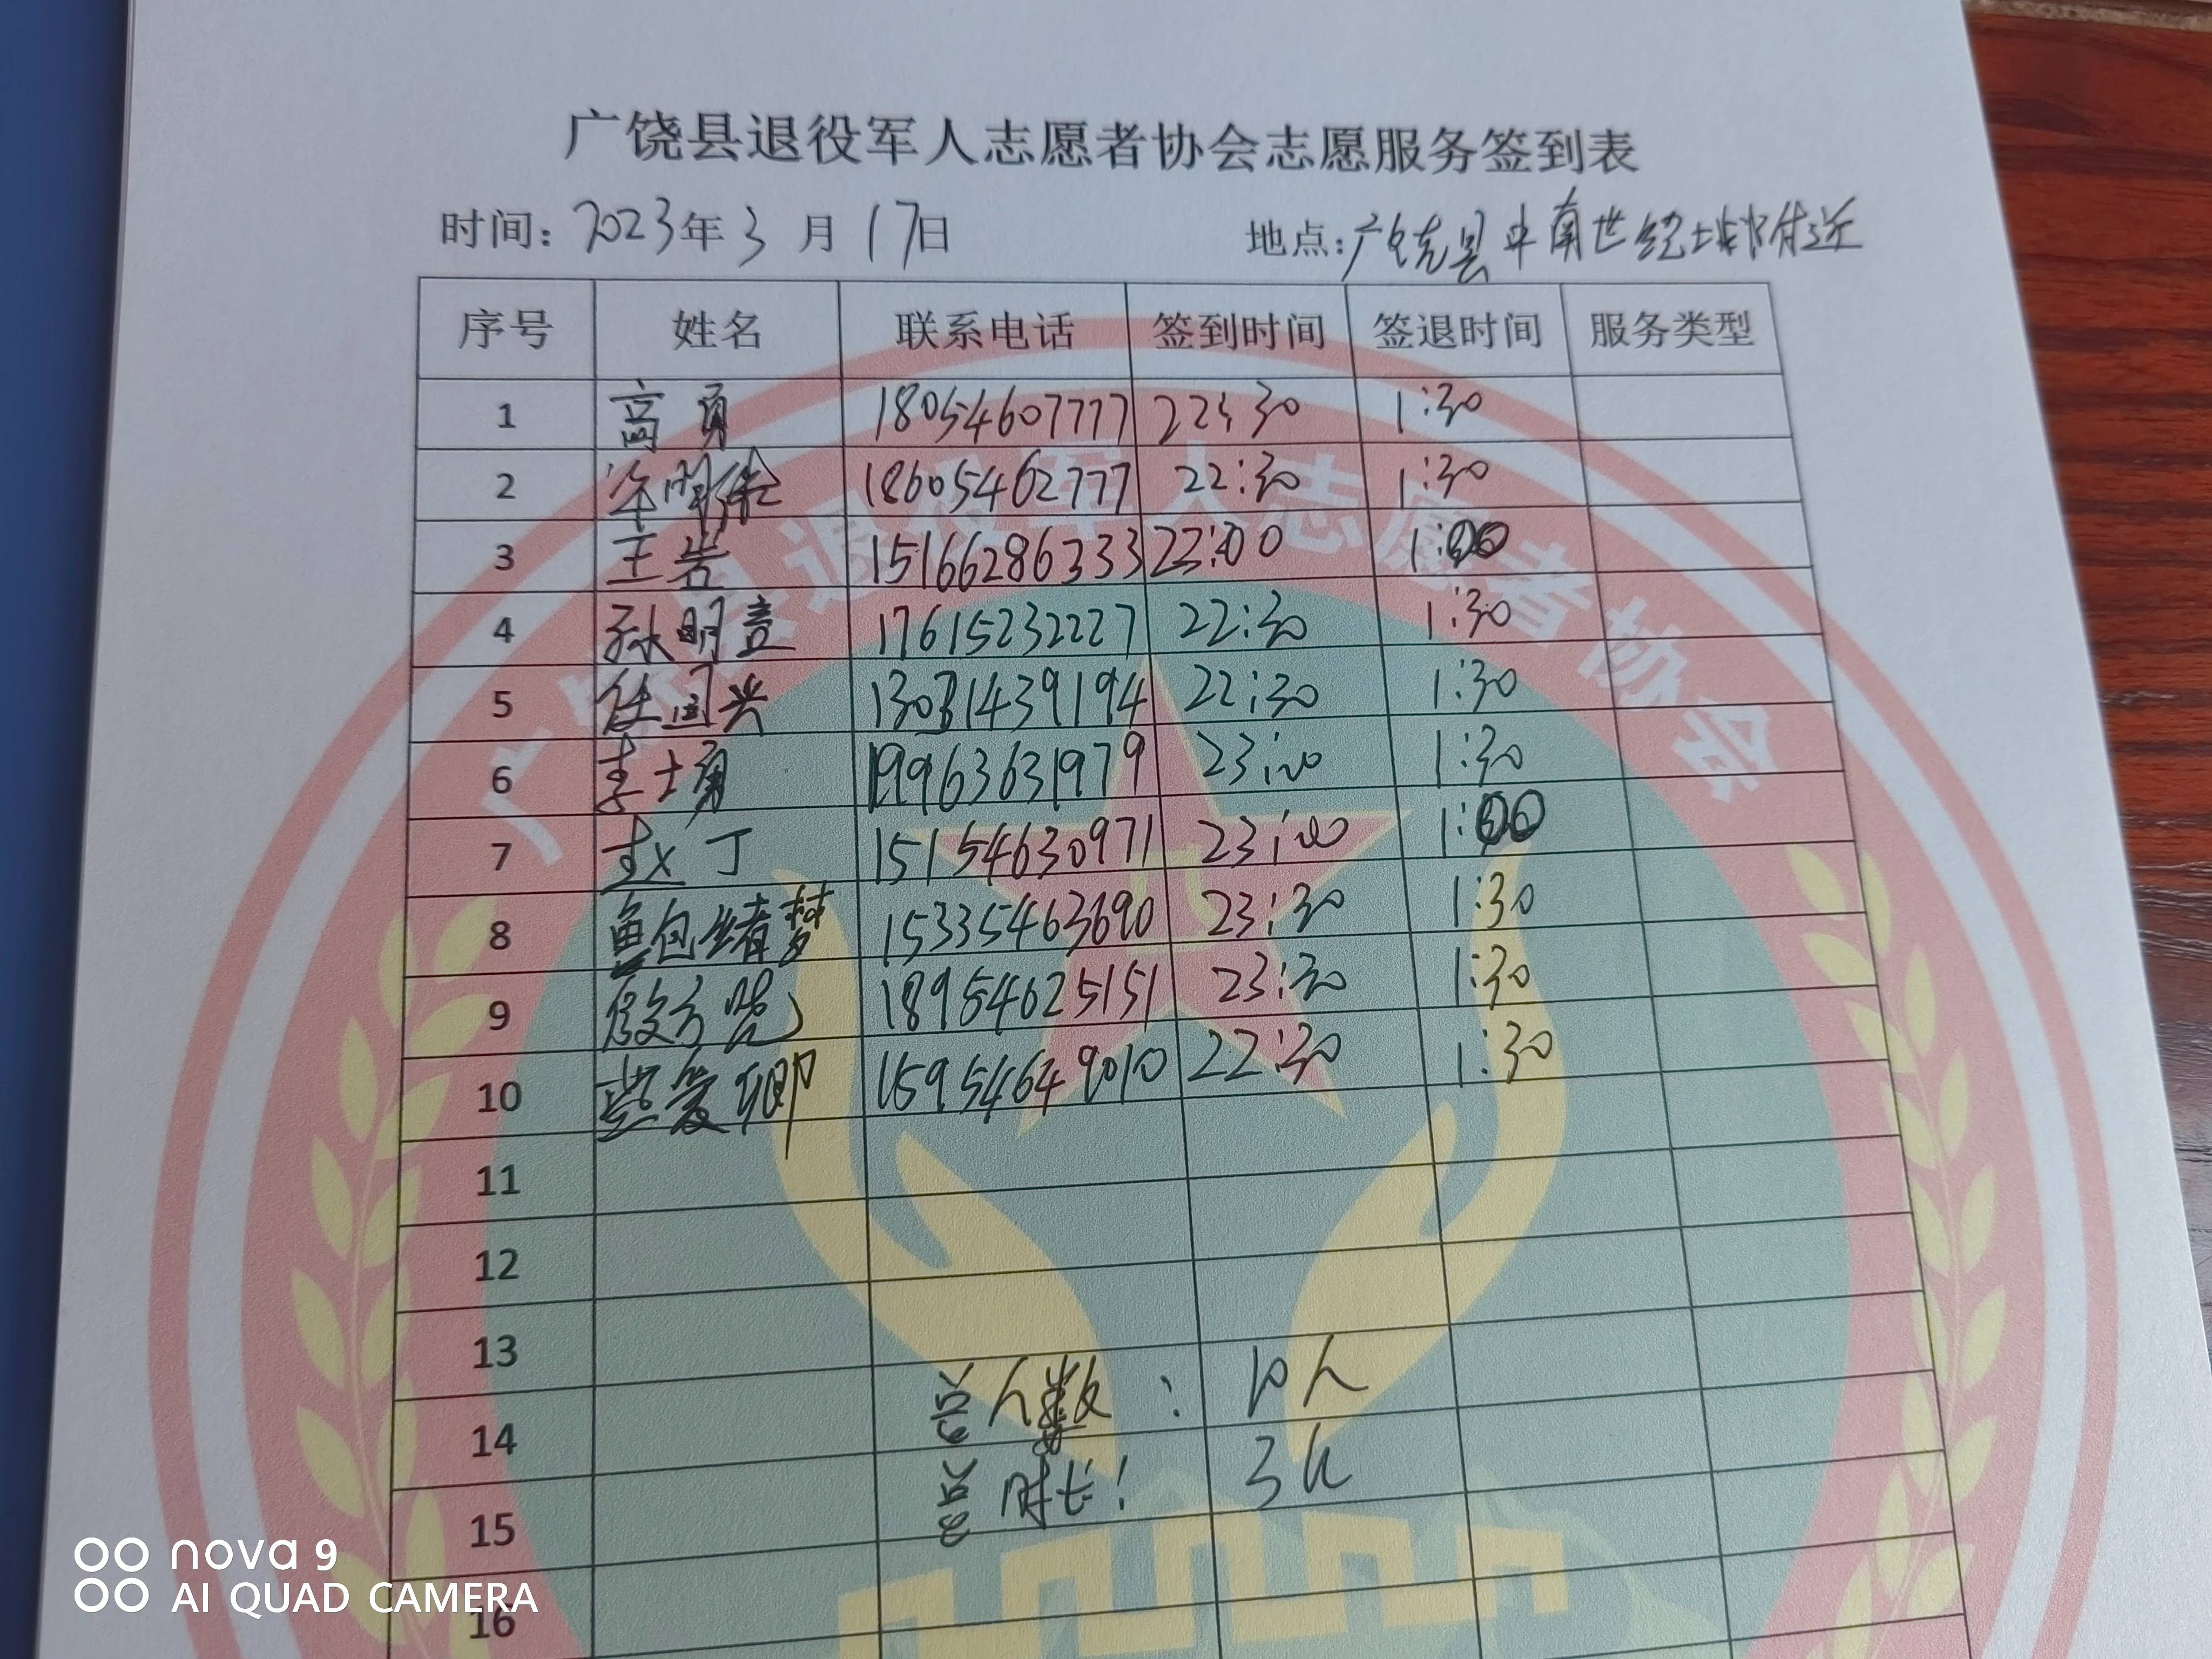 广饶县退役军人志愿者协会志愿服务签到表
时间：2023年3月17日 地点：广饶县中南世纪城附近
序号 姓名 联系电话 签到时间 签退时间 服务类型
1 高勇 18054607777 22:30 1:30
2 18605462777 22:30 1:30
3 王岩 15166286333 22:00 1:00
4 孙明意 17615232227 22:30 1:30
5 任国兴 13031439194 22:30 1:30
6 李士勇 19963631979 23:00 1:30
7 赵丁 15154630971 23:00 1:00
8 鲍绪梦 15335463690 23:30 1:30
9 18954625151 23:30 1:30
10 燕爱卿 15954649010 22:30 1:30
11
12
13
14 总人数：10人
15 总时长：3h
16
广饶县退役军人志愿者协会
nova 9
AI QUAD CAMERA